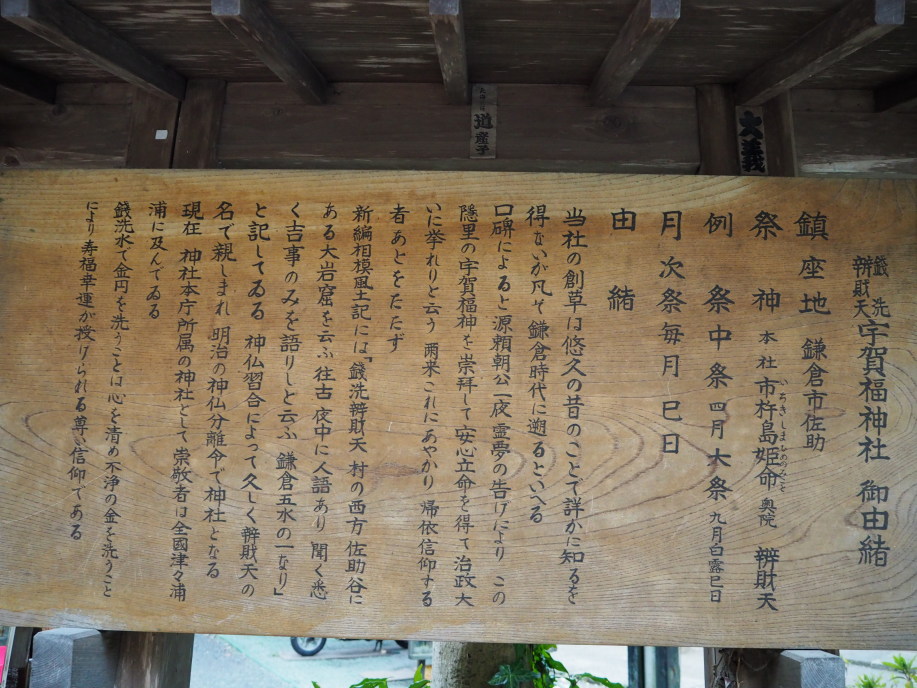 道産子
大義
銭洗辨財天 宇賀福神社 御由緒
鎮座地 鎌倉市佐助
祭神 本社 市杵島姫命 奥院 辨財天
いちきしまひめのみこと
例祭 中祭 四月 大祭 九月白露巳日
月次祭 毎月巳日
由緒
当社の創草は悠久の昔のことで詳かに知るを
得ないが凡そ鎌倉時代に遡るといへる
口碑によると源頼朝公一夜霊夢の告げにより この
隠里の宇賀福神を崇拝して安心立命を得て治政大
いに挙れりと云う 雨来これにあやかり 帰依信仰する
者あとをたたず
新編相模風土記には「銭洗辨財天 村の西方佐助谷に
ある大岩窟を云ふ往古夜中に人語あり 聞く悉
く吉事のみを語りしと云ふ 鎌倉五水の一なり」
と記してゐる 神仏習合によって久しく辨財天の
名で親しまれ 明治の神仏分離令で神社となる
現在 神社本庁所属の神社として崇敬者は全國津々浦
浦に及んでゐる
銭洗水で金円を洗うことは心を清め不浄の金を洗うこと
により寿福幸運が授けられる尊い信仰である